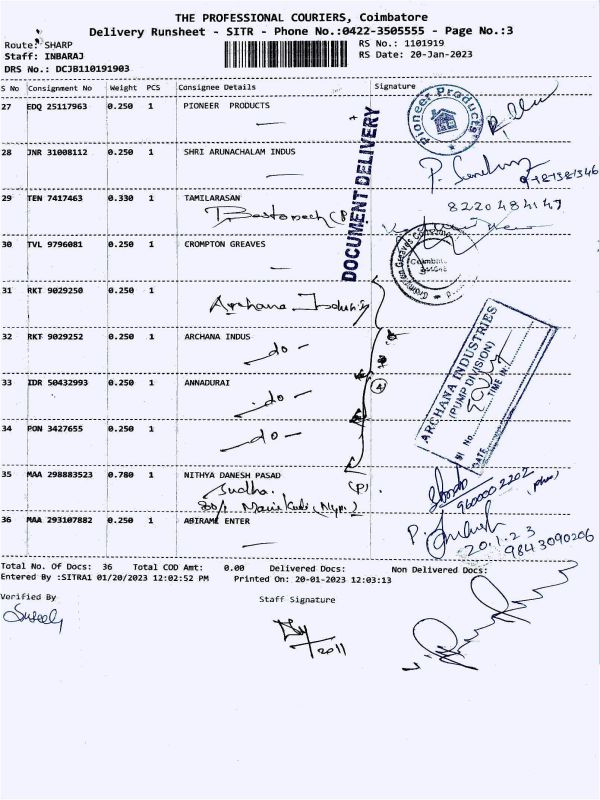 THE PROFESSIONAL COURIERS, Coimbatore
Delivery Runsheet - SITR - Phone No.:0422-3505555 - Page No.:3
Route: SHARP
RS No.: 1101919
Staff: INBARAJ
RS Date: 20-Jan-2023
DRS No.: DCJB110191903
S No Consignment No Weight PCS Consignee Details Signature
27 EDQ 25117963 0.250 1 PIONEER PRODUCTS
Pioneer Products
DOCUMENT DELIVERY
28 JNR 31008112 0.250 1 SHRI ARUNACHALAM INDUS
29 TEN 7417463 0.330 1 TAMILARASAN
8220484147
30 TVL 9796081 0.250 1 CROMPTON GREAVES
31 RKT 9029250 0.250 1
Archana Industries
32 RKT 9029252 0.250 1 ARCHANA INDUS
- do -
ARCHANA INDUSTRIES
(PUMP DIVISION)
TIME IN:
DATE
33 IDR 50432993 0.250 1 ANNADURAI
- do -
34 PON 3427655 0.250 1
- do -
35 MAA 298883523 0.780 1 NITHYA DANESH PASAD
Sudha. (P).
9600002202
36 MAA 293107882 0.250 1 ABIRAME ENTER
20.1.23
9843090206
Total No. Of Docs: 36 Total COD Amt: 0.00 Delivered Docs: Non Delivered Docs:
Entered By :SITRA1 01/20/2023 12:02:52 PM Printed On: 20-01-2023 12:03:13
Verified By
Staff Signature